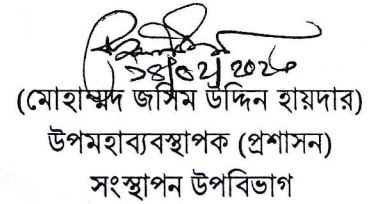 ১৪/০২/২০২৬
(মোহাম্মদ জসিম উদ্দিন হায়দার)
উপমহাব্যবস্থাপক (প্রশাসন)
সংস্থাপন উপবিভাগ